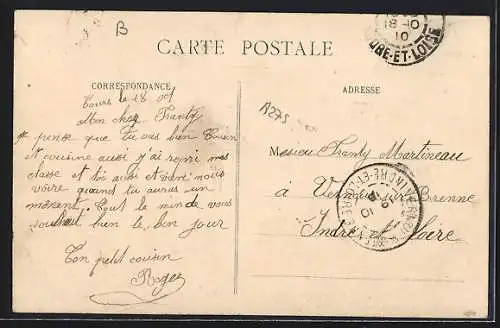 B
CARTE POSTALE
CORRESPONDANCE
ADRESSE
Tours le 18
Mon cher Franty
pense que tu vas bien Cousin
et cousine aussi j'ai repri mes
classe et toi aussi et viens nous
voire quand tu auras un
moment. Tout le monde vous
souhait bien le bon jour
Ton petit cousin
Roger
A275
Monsieu Franty Martineau
à Vernou sur Brenne
Indre et Loire
INDRE-ET-LOIRE